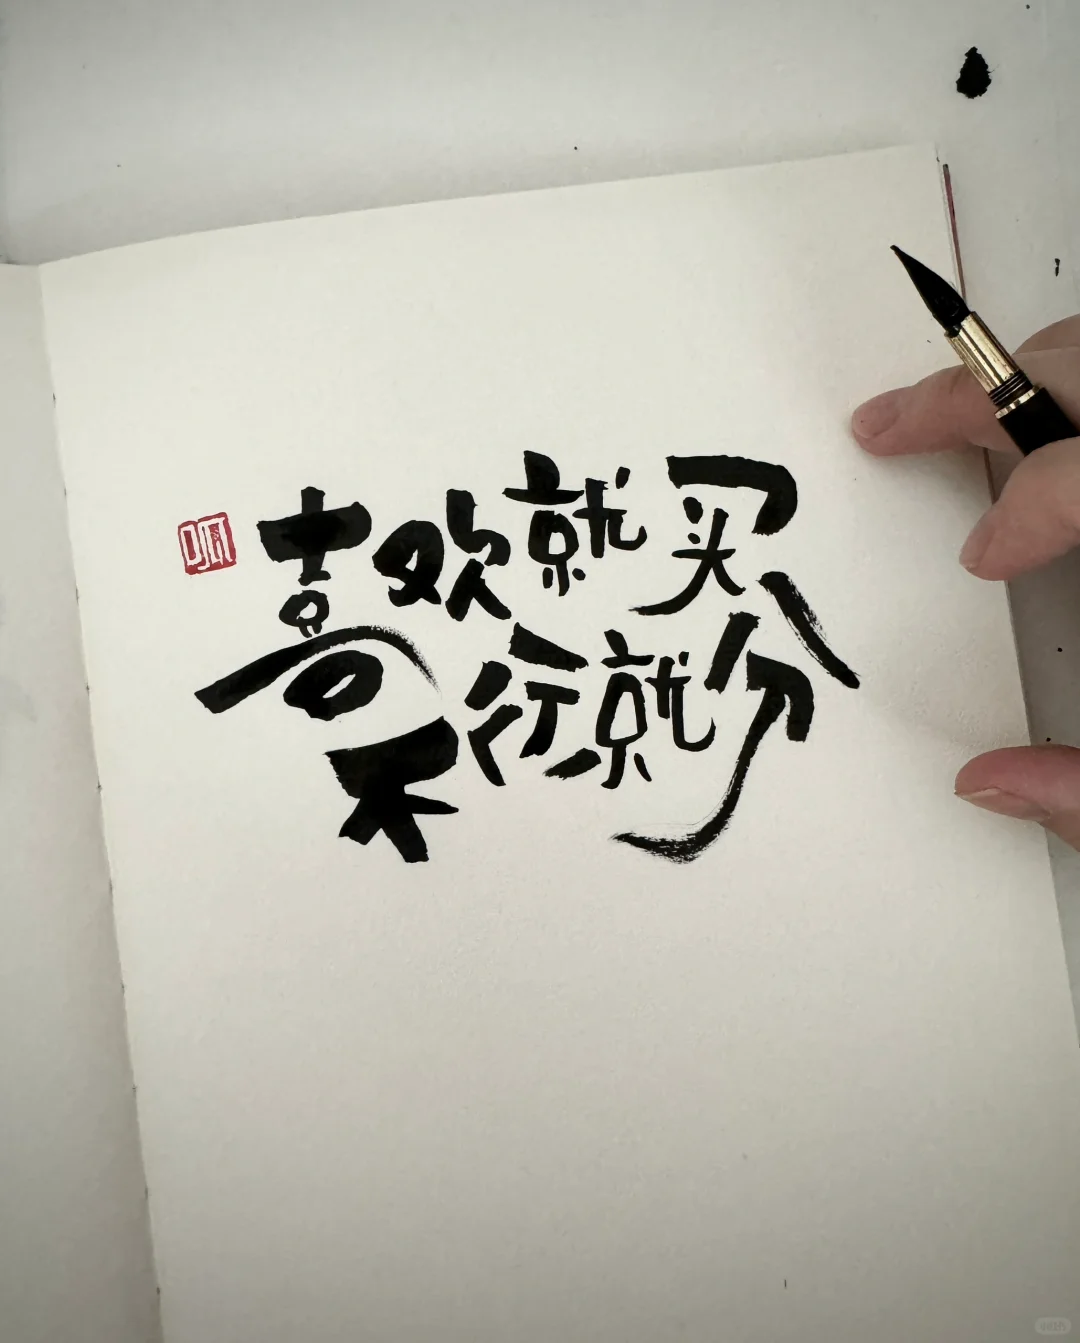 喜欢就买
不行就分